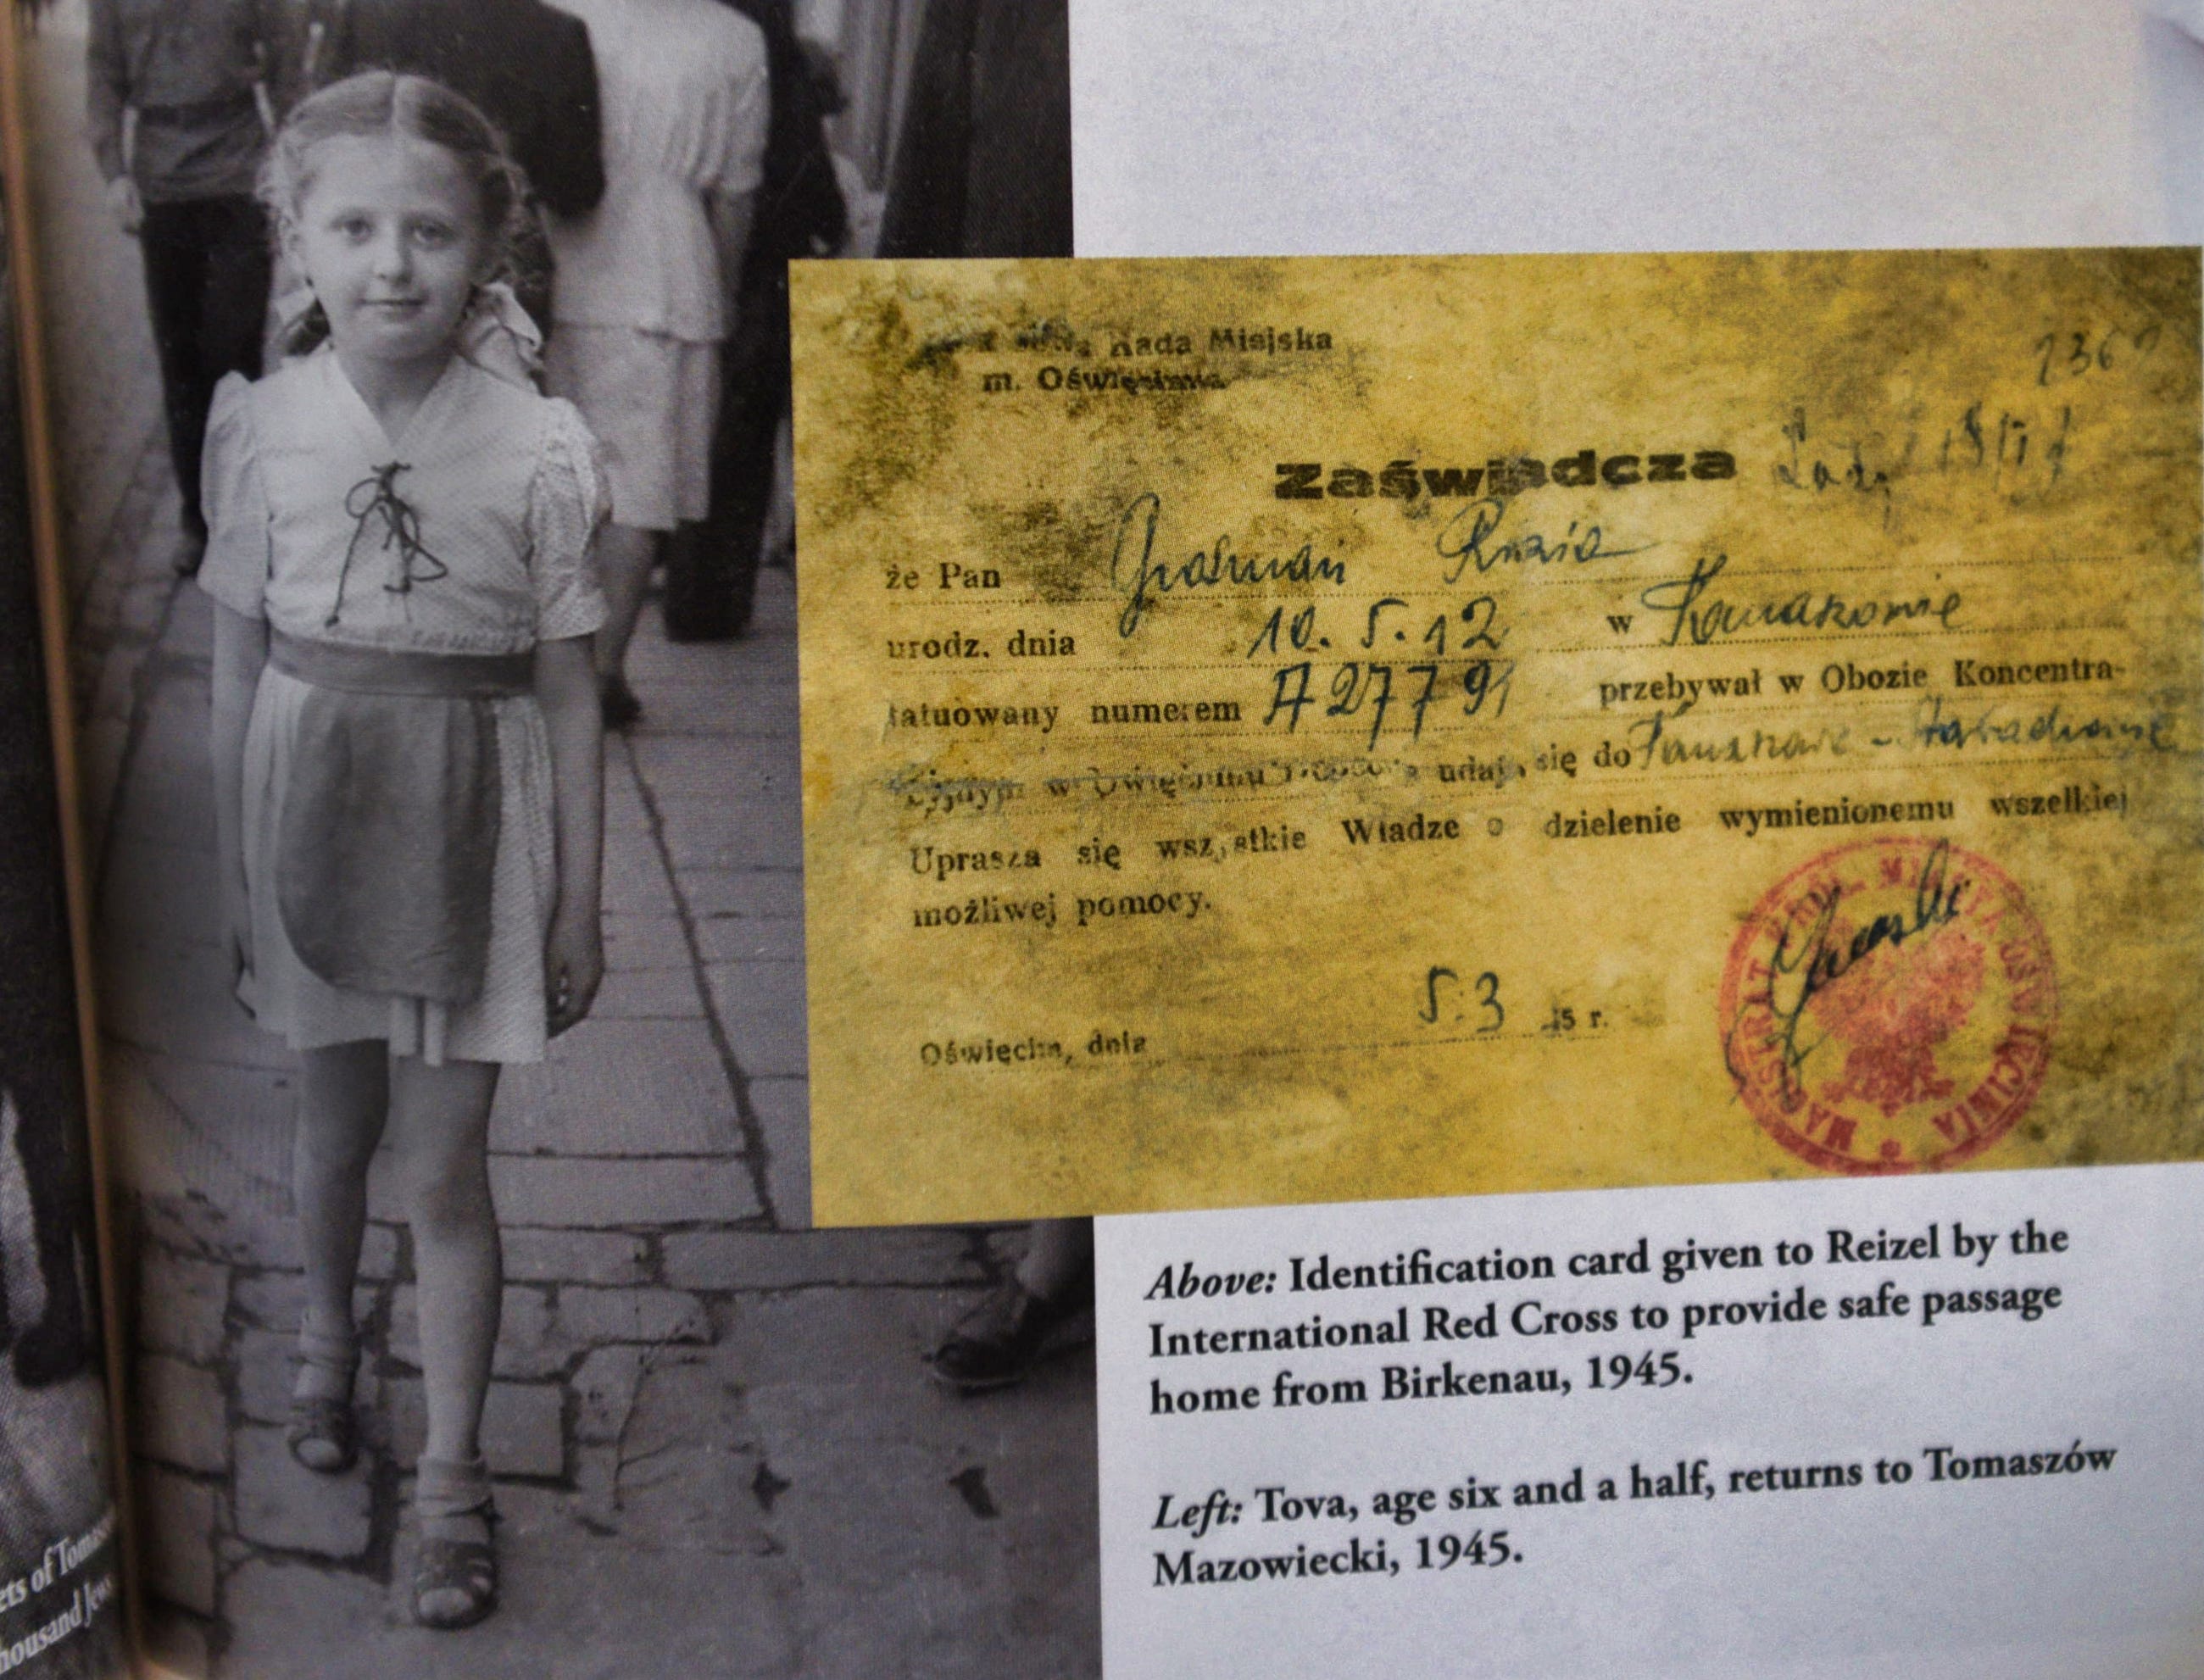 Rada Miejska
m. Oświęcimia
Zaświadcza
że Pan Grosman Rozia
urodz. dnia 10.5.12 w
tatuowany numerem A27791 przebywał w Obozie Koncentra-
cyjnym w udaje się do
Uprasza się wszystkie Władze o dzielenie wymienionemu wszelkiej
możliwej pomocy.
Oświęcim, dnia 5.3 45 r.
MAGISTRAT KRÓL. MIASTA OŚWIĘCIMIA
Above: Identification card given to Reizel by the
International Red Cross to provide safe passage
home from Birkenau, 1945.
Left: Tova, age six and a half, returns to Tomaszów
Mazowiecki, 1945.
ets of Tomas
housand Jews